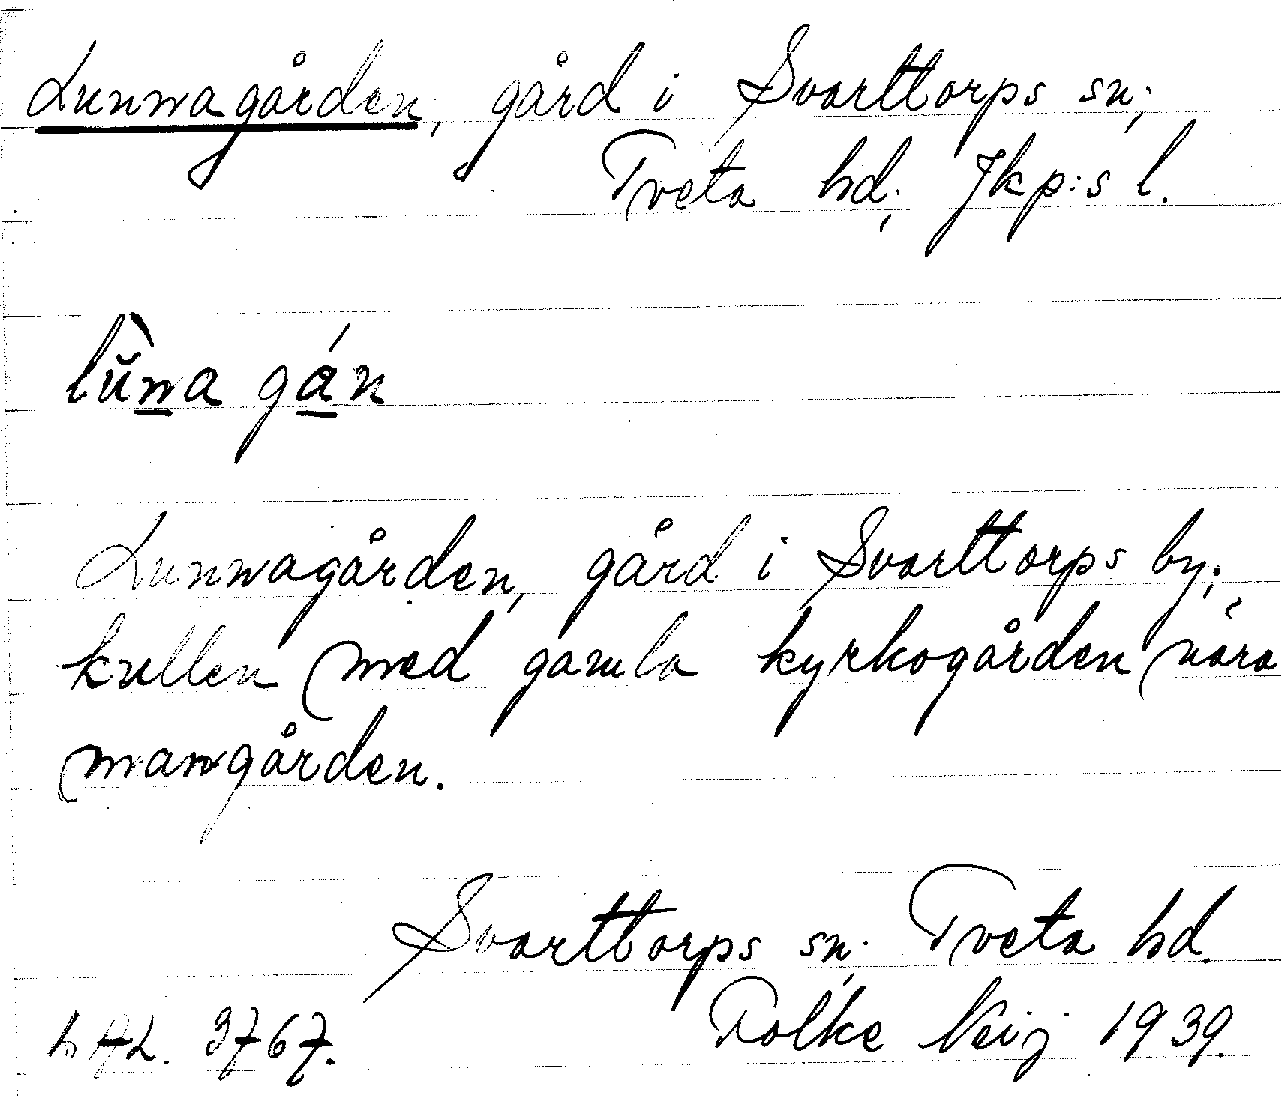 Lunnagården, gård i Svarttorps sn.,
Tveta hd., Jkp:s l.
lŭ̀na gán
Lunnagården, gård i Svarttorps by.;
kullen med gamla kyrkogården nära
mangården.
Svarttorps sn., Tveta hd.
LAL. 3767. Folke Neij 1939.